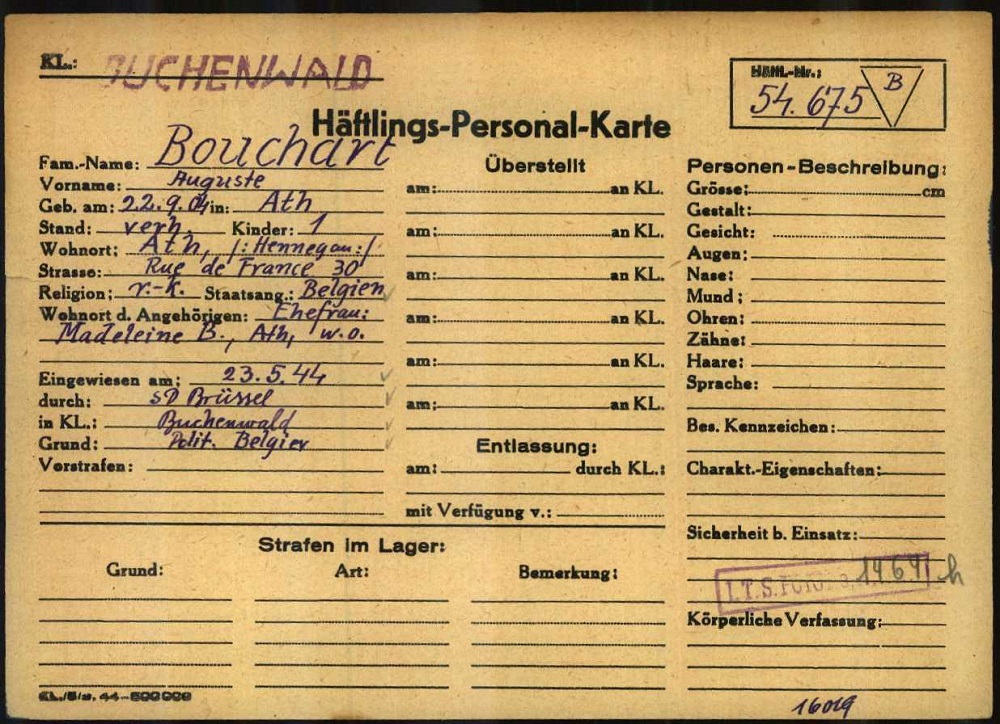 KL.: BUCHENWALD
Häftl.-Nr.:
54.675 B
Häftlings-Personal-Karte
Fam.-Name: Bouchart
Vorname: Auguste
Geb. am: 22.9.04 in: Ath
Stand: verh. Kinder: 1
Wohnort: Ath, /: Hennegau :/
Strasse: Rue de France 30
Religion: r.-k. Staatsang.: Belgien
Wohnort d. Angehörigen: Ehefrau:
Madeleine B., Ath, w.o.
Eingewiesen am: 23.5.44
durch: SD Brüssel
in KL.: Buchenwald
Grund: Polit. Belgier
Vorstrafen:
Überstellt
am: an KL.
am: an KL.
am: an KL.
am: an KL.
am: an KL.
am: an KL.
Entlassung:
am: durch KL.:
mit Verfügung v.:
Personen-Beschreibung:
Grösse: cm
Gestalt:
Gesicht:
Augen:
Nase:
Mund:
Ohren:
Zähne:
Haare:
Sprache:
Bes. Kennzeichen:
Charakt.-Eigenschaften:
Sicherheit b. Einsatz:
I.T.S. FOTO
Körperliche Verfassung:
Strafen im Lager:
Grund: Art: Bemerkung:
16019